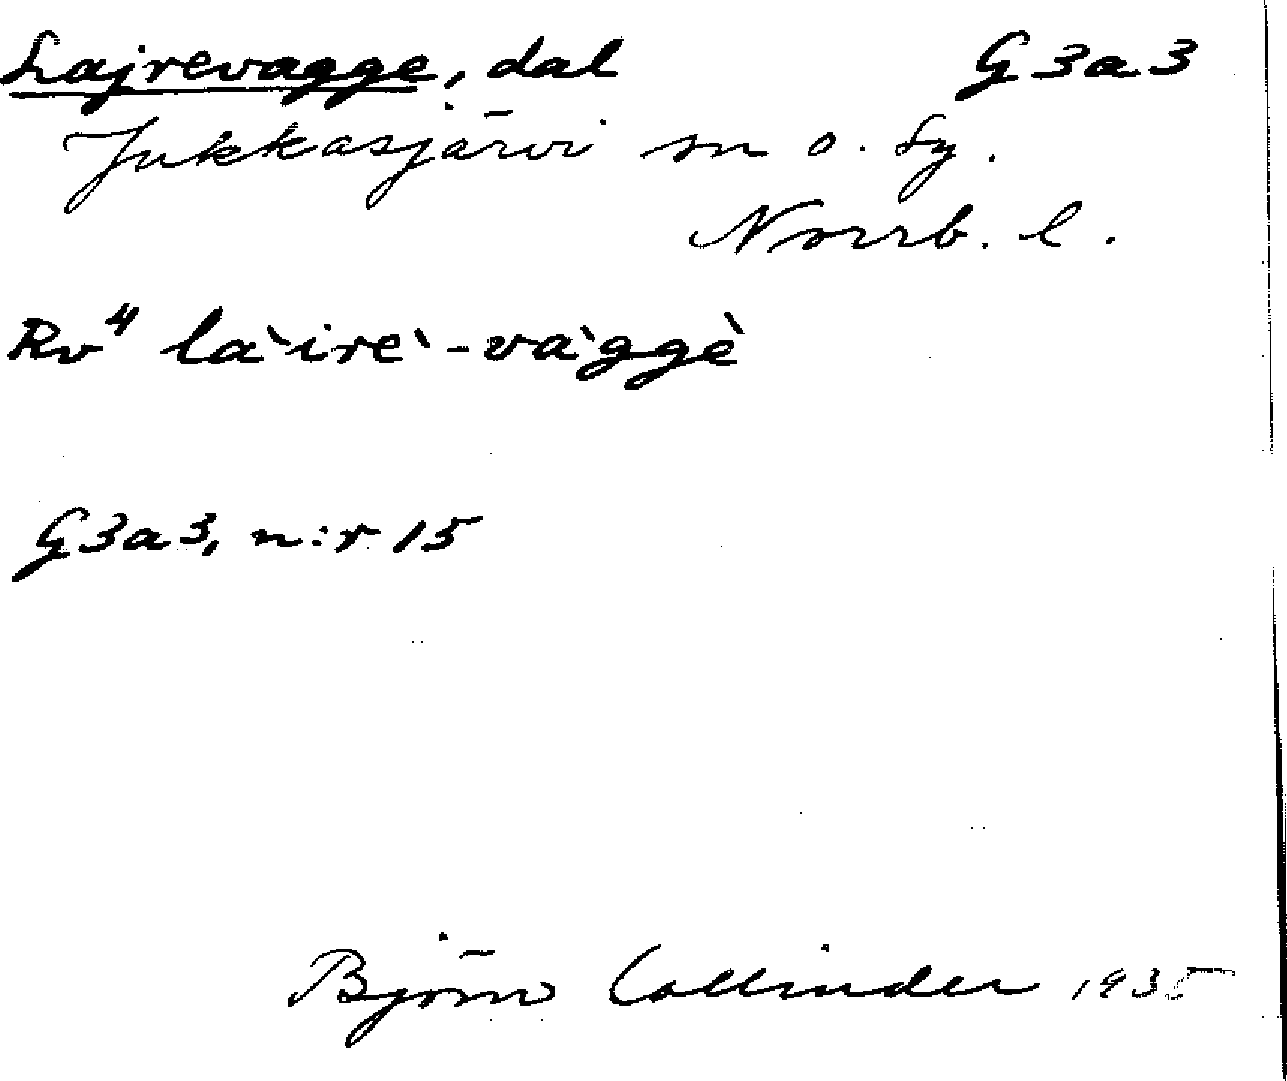 Lajrevagge, dal G3a3
Jukkasjärvi sn o. Ly.
Norrb. l.
Rv⁴ là`irè`-và`ggè
G3a3, n:r 15
Björn Collinder 1935